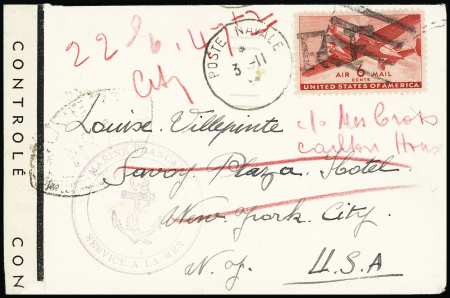 22 E. 47 St
City
POSTE NAVALE
3-11
AIR 6 MAIL
CENTS
UNITED STATES OF AMERICA
CONTROLÉ CON
Louise Villepinte
c/o Mrs
Carlton House
Savoy Plaza Hotel
New York City
N.Y. U.S.A
MARINE FRANÇAISE
SERVICE A LA MER